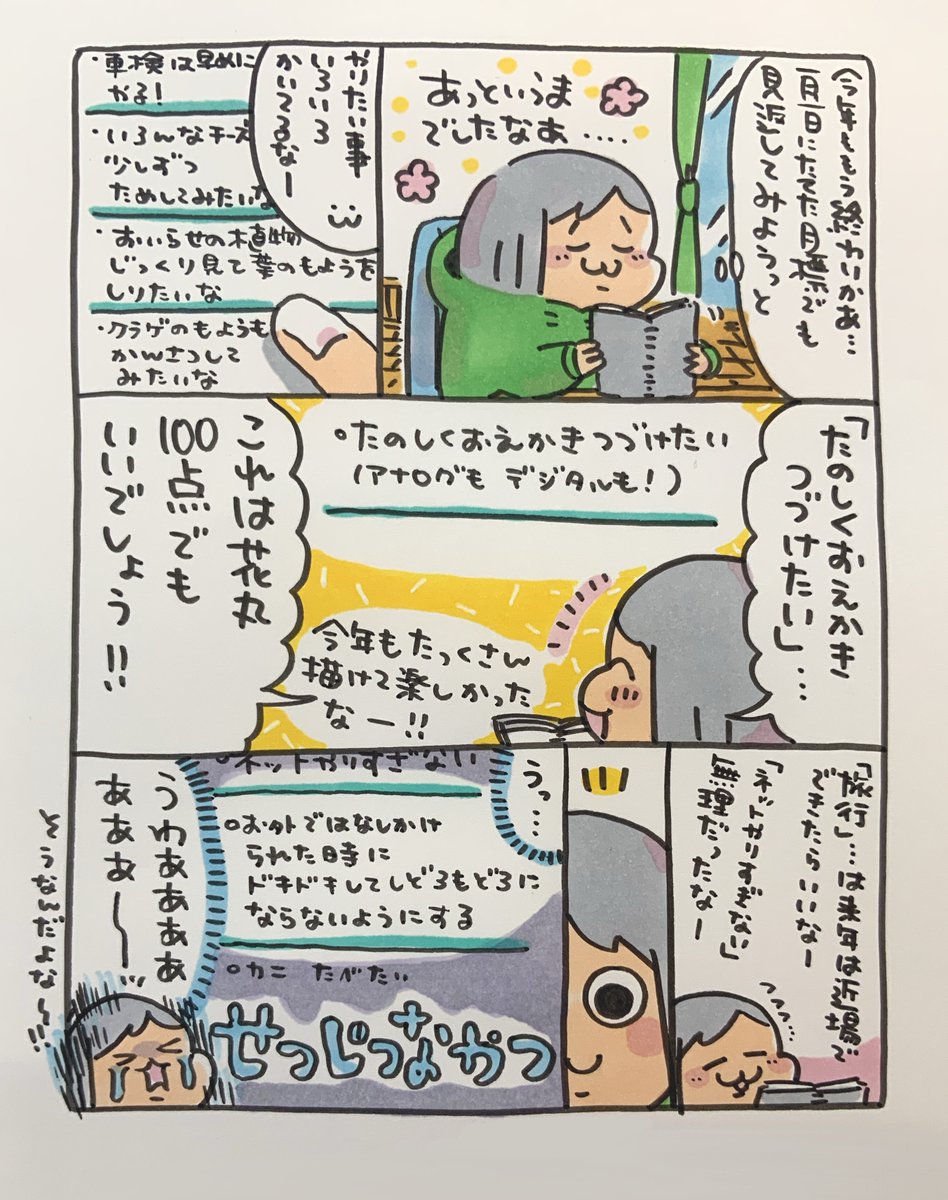 今年ももう終わいかあ…
一月一日にたてた目標でも
見返してみようっと
あっというま
でしたなあ....
やりたい事
いろいろ
かいてるなー
・車検は早めに
やる!
・いろんなチーズ
少しずつ
ためしてみたいな
・おいらせの植物
じっくり見て葉のもようを
しりたいな
・クラゲのもようも
かんさつして
みたいな
「たのしくおえかき
つづけたい」...
。たのしくおえかきつづけたい
(アナログも デジタルも!)
今年もたっくさん
描けて楽しかった
なー!!
これは花丸
100点でも
いいでしょう!!
「旅行」…は来年は近場で
できたらいいなー
「ネットやりすぎない」
無理だったなー
うっ...
。ネットやりすぎない
。お外ではなしかけ
られた時に
ドキドキしてしどろもどろに
ならないようにする
。カニ たべたい
せつじつなやつ
うわあああぁ
あああ〜〜
とうなんだよな〜!!